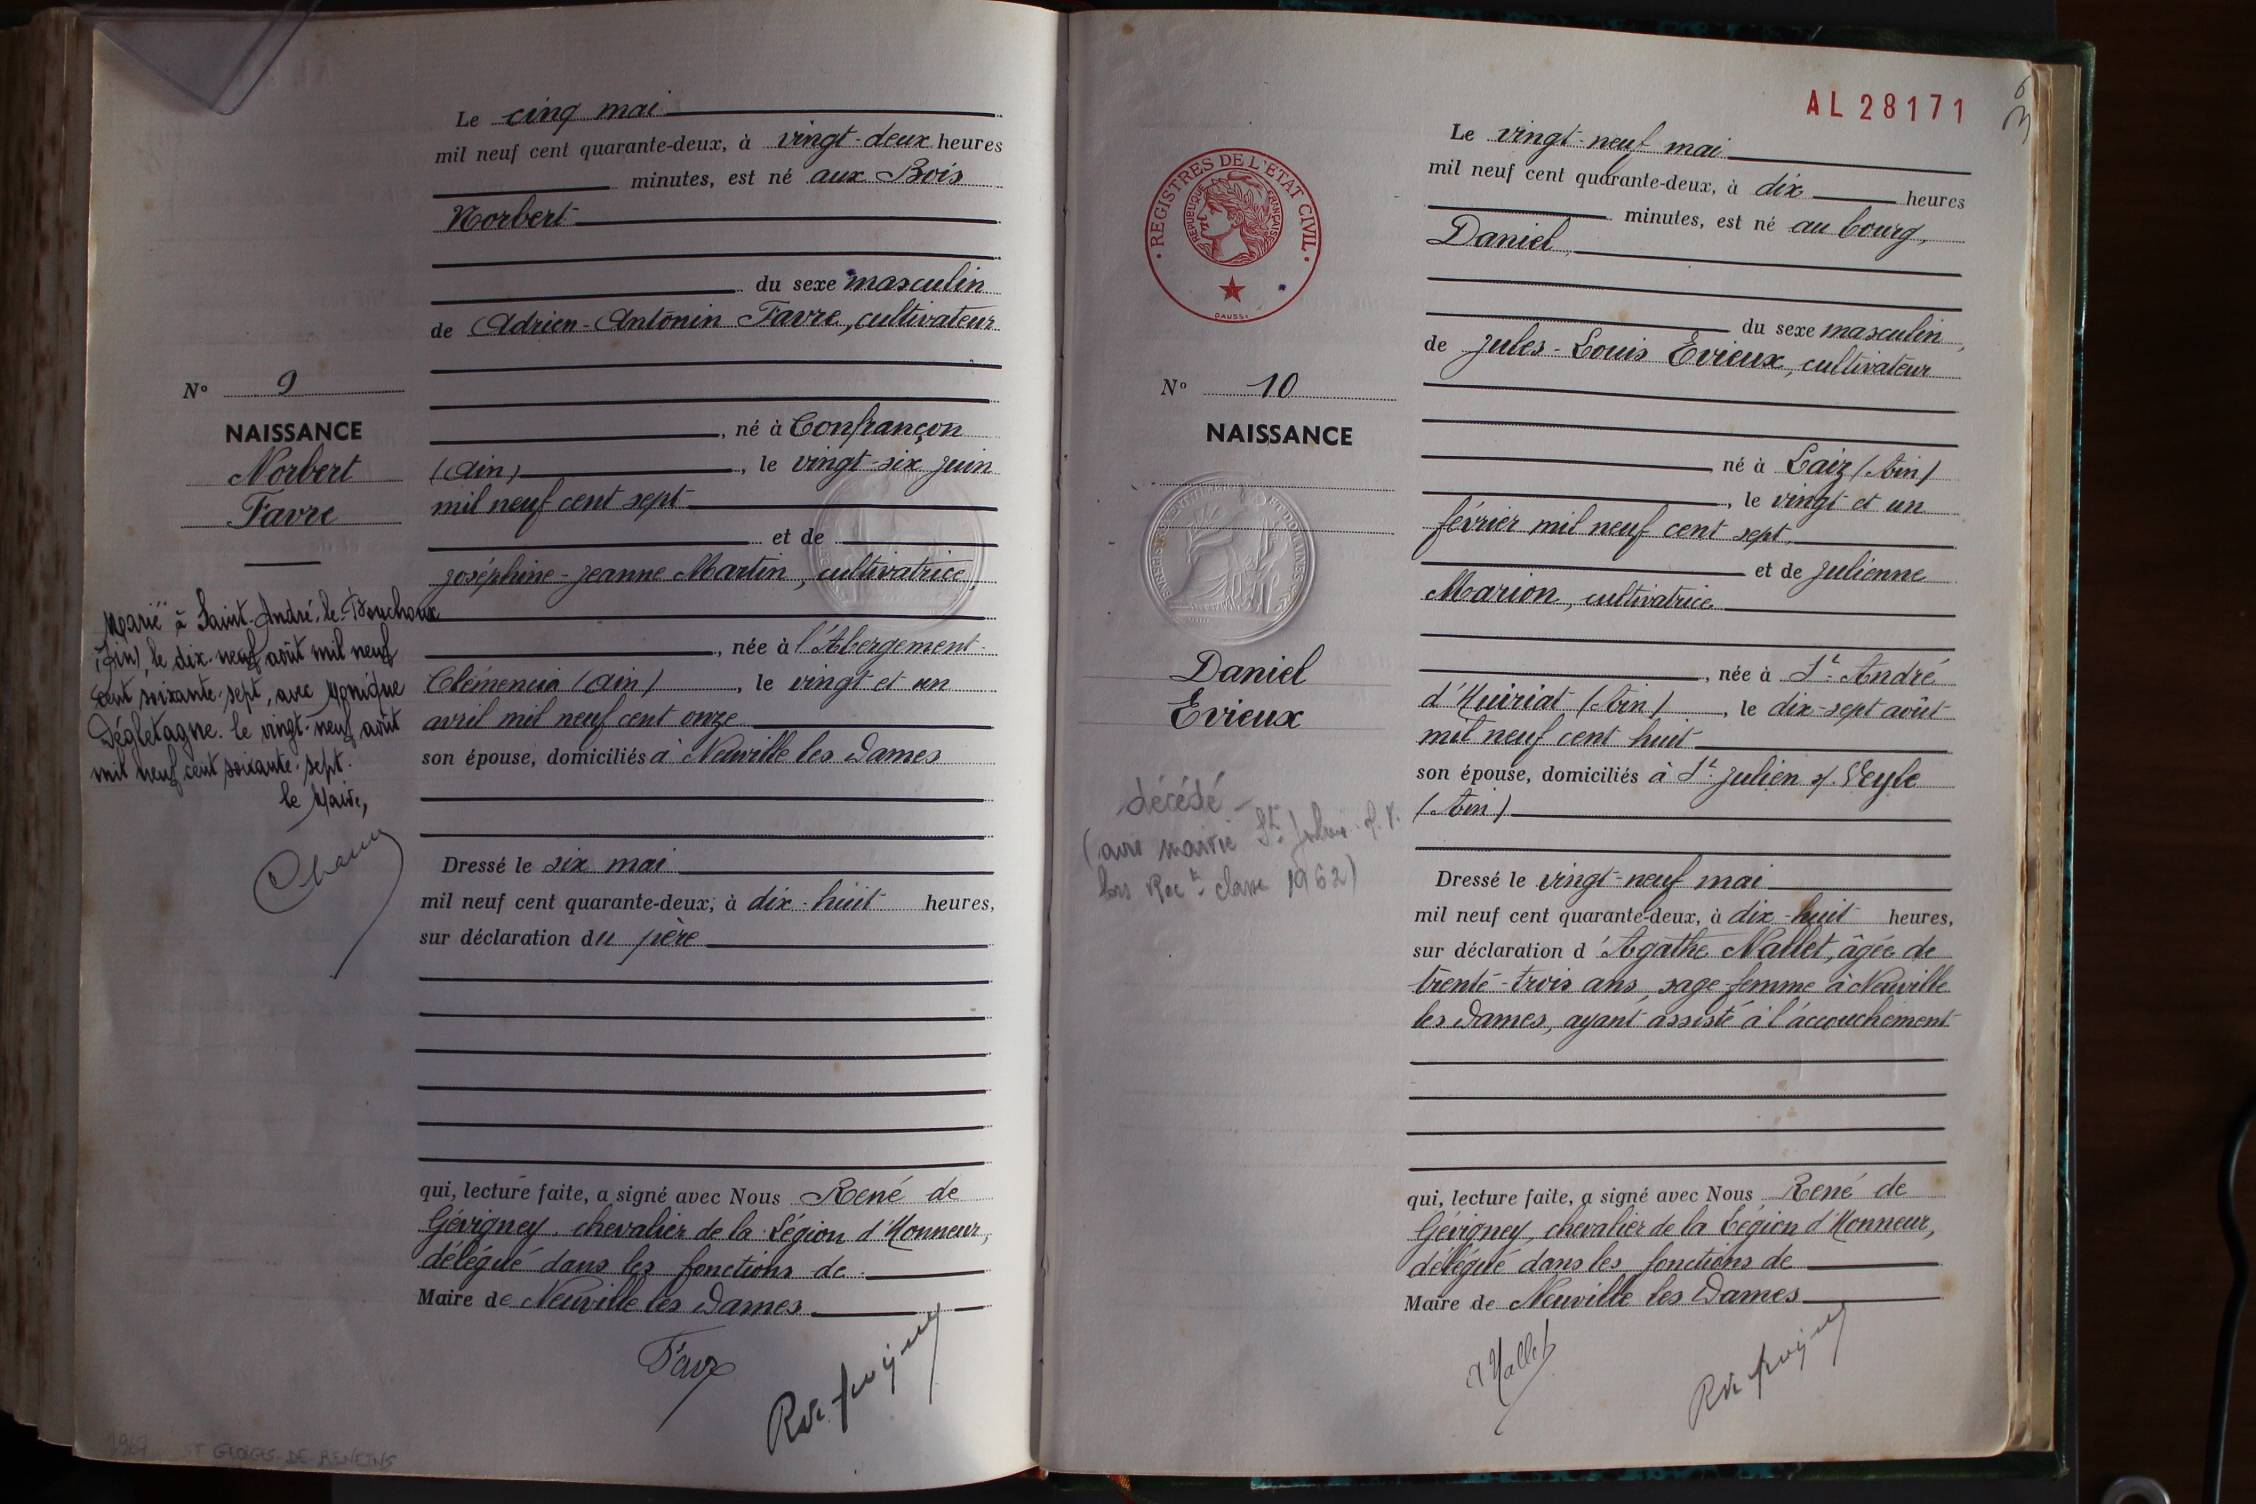 Le cinq mai
mil neuf cent quarante-deux, à vingt-deux heures
minutes, est né aux Bois
Norbert
du sexe masculin
de Adrien-Antonin Favre, cultivateur
, né à Confrançon
(Ain), le vingt-six juin
mil neuf cent sept
et de
Joséphine-Jeanne Martin, cultivatrice,
, née à l'Abergement-
Clémencia (Ain), le vingt et un
avril mil neuf cent onze
son épouse, domiciliés à Neuville les Dames
Dressé le six mai
mil neuf cent quarante-deux, à dix-huit heures,
sur déclaration du père
qui, lecture faite, a signé avec Nous René de
Gévigney, chevalier de la Légion d'Honneur,
délégué dans les fonctions de
Maire de Neuville les Dames
Favre
N° 9
NAISSANCE
Norbert
Favre
Marié à Saint-André-le-Bouchoux
(Ain), le dix-neuf août mil neuf
cent soixante-sept, avec Monique
Dégletagne. le vingt-neuf août
mil neuf cent soixante-sept.
le Maire,
ST GEORGES DE RENEINS
AL 28171
36
REGISTRES DE L'ETAT CIVIL
REPUBLIQUE FRANÇAISE
Le vingt-neuf mai
mil neuf cent quarante-deux, à dix heures
minutes, est né au bourg,
Daniel,
du sexe masculin,
de Jules-Louis Evieux, cultivateur
né à Laiz (Ain)
, le vingt et un
février mil neuf cent sept,
et de Julienne
Marion, cultivatrice
, née à St-André
d'Huiriat (Ain), le dix-sept août
mil neuf cent huit
son épouse, domiciliés à St-Julien s/. Veyle
(Ain)
Dressé le vingt-neuf mai
mil neuf cent quarante-deux, à dix-huit heures,
sur déclaration d'Agathe Nallet, âgée de
trente-trois ans, sage femme à Neuville
les Dames, ayant assisté à l'accouchement
qui, lecture faite, a signé avec Nous René de
Gévigney, chevalier de la Légion d'Honneur,
délégué dans les fonctions de
Maire de Neuville les Dames
A Nallet
N° 10
NAISSANCE
Daniel
Evieux
décédé -
(avis mairie St Julien s/. V.
lors Rect classe 1962)